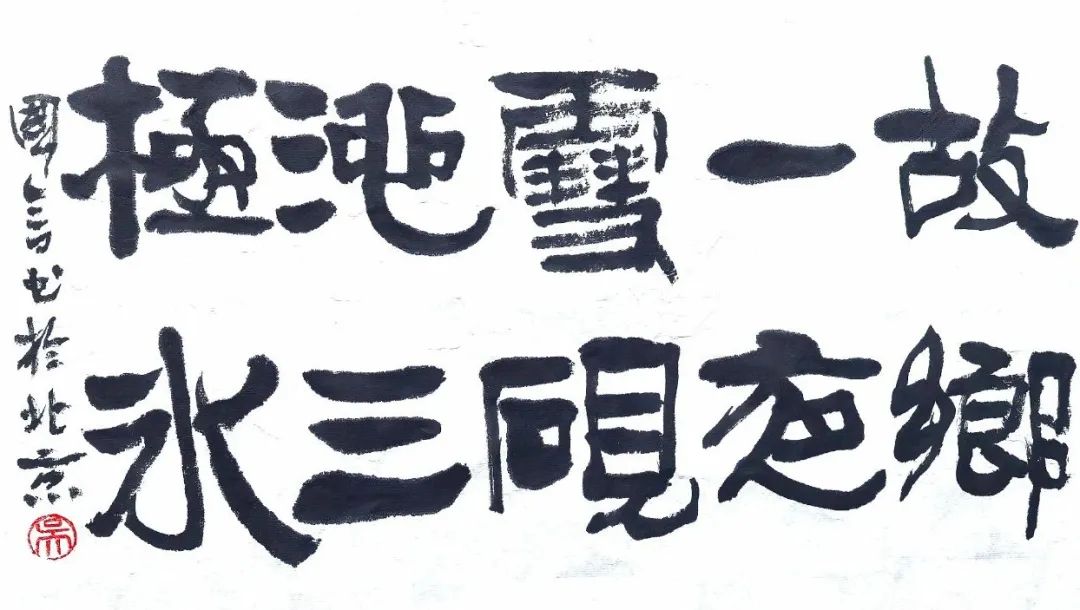 故鄉
一夜
雪硯
池三
極氷
國言书於北京